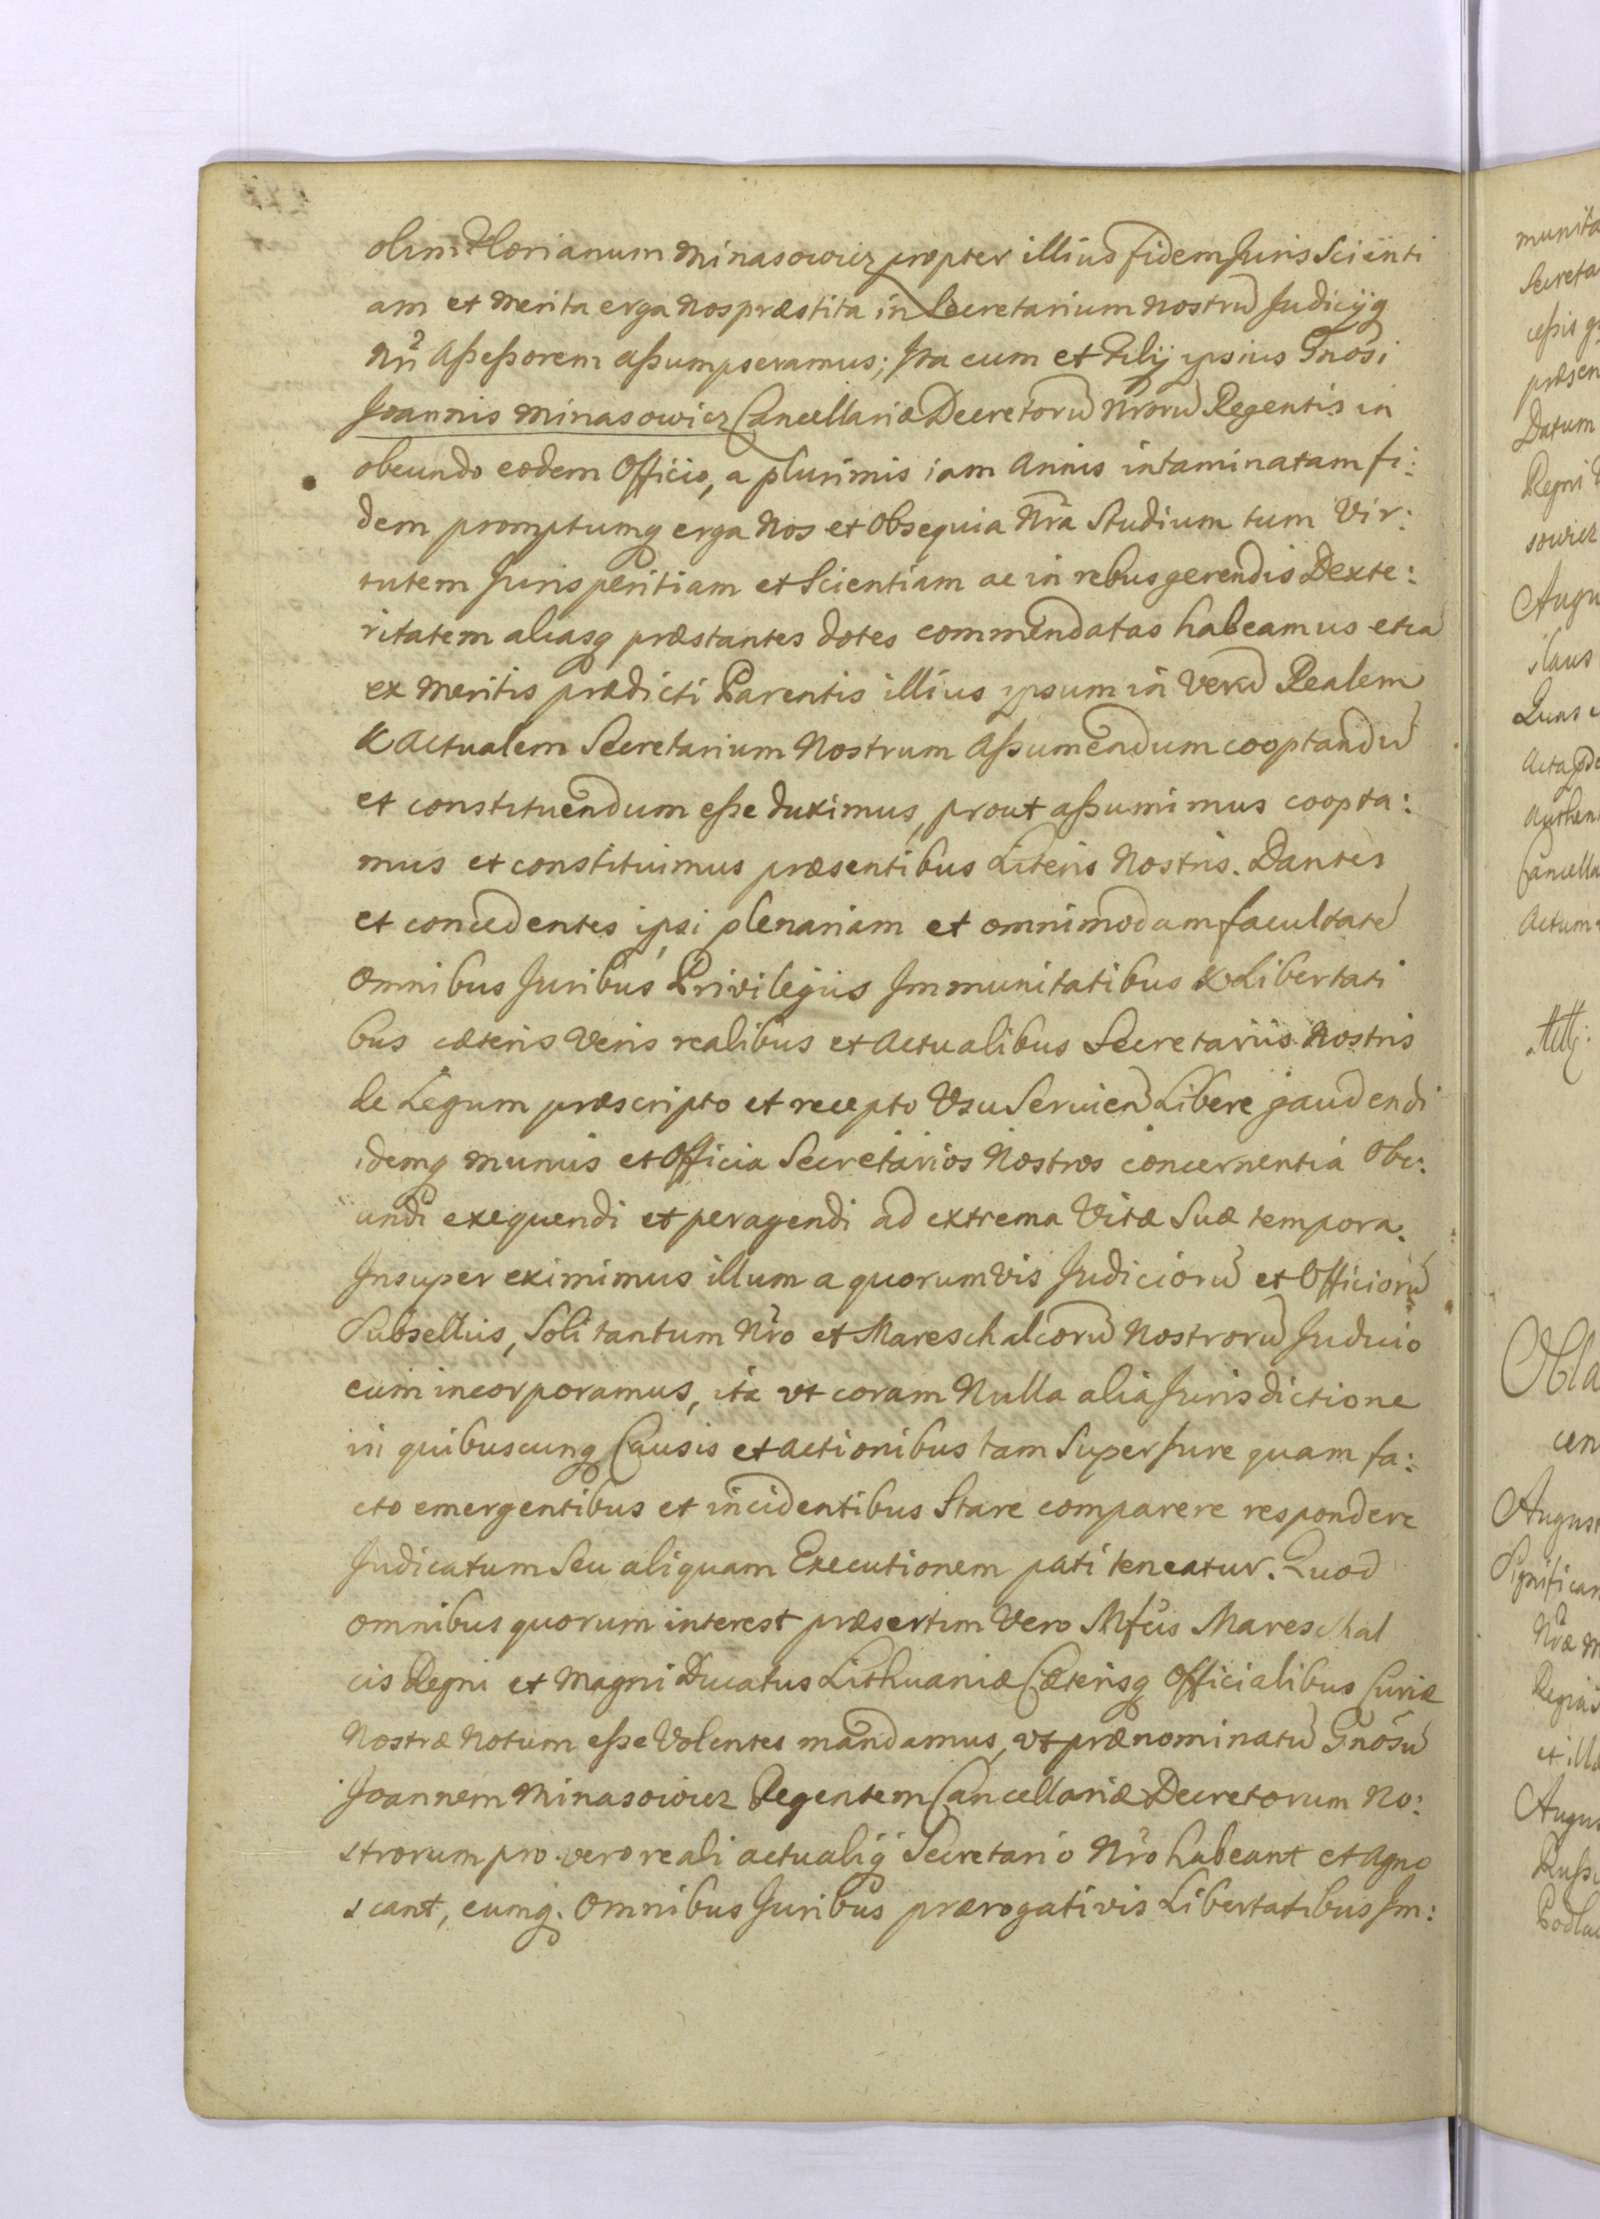 olim Florianum Minasowicz propter illius fidem Juris Scienti
am et Merita erga Nos præstita in Secretarium Nostrū Judicijq
Nri Aßeßorem aßumpseramus; Ita cum et Filij ipsius Gnosi
Joannis Minasowicz Cancellariæ Decretorū Nrorū Regentis in
obeundo eodem Officio, a plurimis iam Annis intaminatam fi:
dem promptumq erga Nos et Obsequia Nra Studium tum Vir:
tutem Juris peritiam et Scientiam ac in rebus gerendis Dexte:
ritatem aliasq præstantes dotes commendatas habeamus etiā
ex Meritis prædicti Parentis illius ipsum in Verū Realem
& Actualem Secretarium Nostrum Aßumendum cooptandū
et constituendum eße duximus, prout aßumimus coopta:
mus et constituimus præsentibus Literis Nostris. Dantes
et concedentes ipsi plenariam et omnimodam facultatē
Omnibus Juribus Privilegiis Immunitatibus & Libertati
bus cæteris Veris realibus et Actualibus Secretariis Nostris
de Legum præscripto et recepto Usu Servien Libere gaudendi
idemq munus et Officia Secretarios Nostros concernentia Obe:
undi exequendi et peragendi ad extrema Vitæ Suæ tempora.
Insuper eximimus illum a quorumvis Judiciorū et Officiorū
Subselliis, Soli tantum Nro et Mareschalcorū Nostrorū Judicio
eum incorporamus, ita ut coram Nulla alia Jurisdictione
in quibuscunq Causis et Actionibus tam Super Jure quam fa:
cto emergentibus et incidentibus Stare comparere respondere
Judicatum Seu aliquam Executionem pati teneatur. Quod
omnibus quorum interest præsertim Vero Mfcis Mareschal
cis Regni et Magni Ducatus Lithuaniæ Cæterisq Officialibus Curiæ
Nostræ Notum eße Volentes mandamus, ut prænominatū Gnosū
Joannem Minasowicz Regentem Cancellariæ Decretorum No:
strorum pro vero reali actualiq Secretario Nro habeant et Agno
scant, eumq. Omnibus Juribus prærogativis Libertatibus Im: